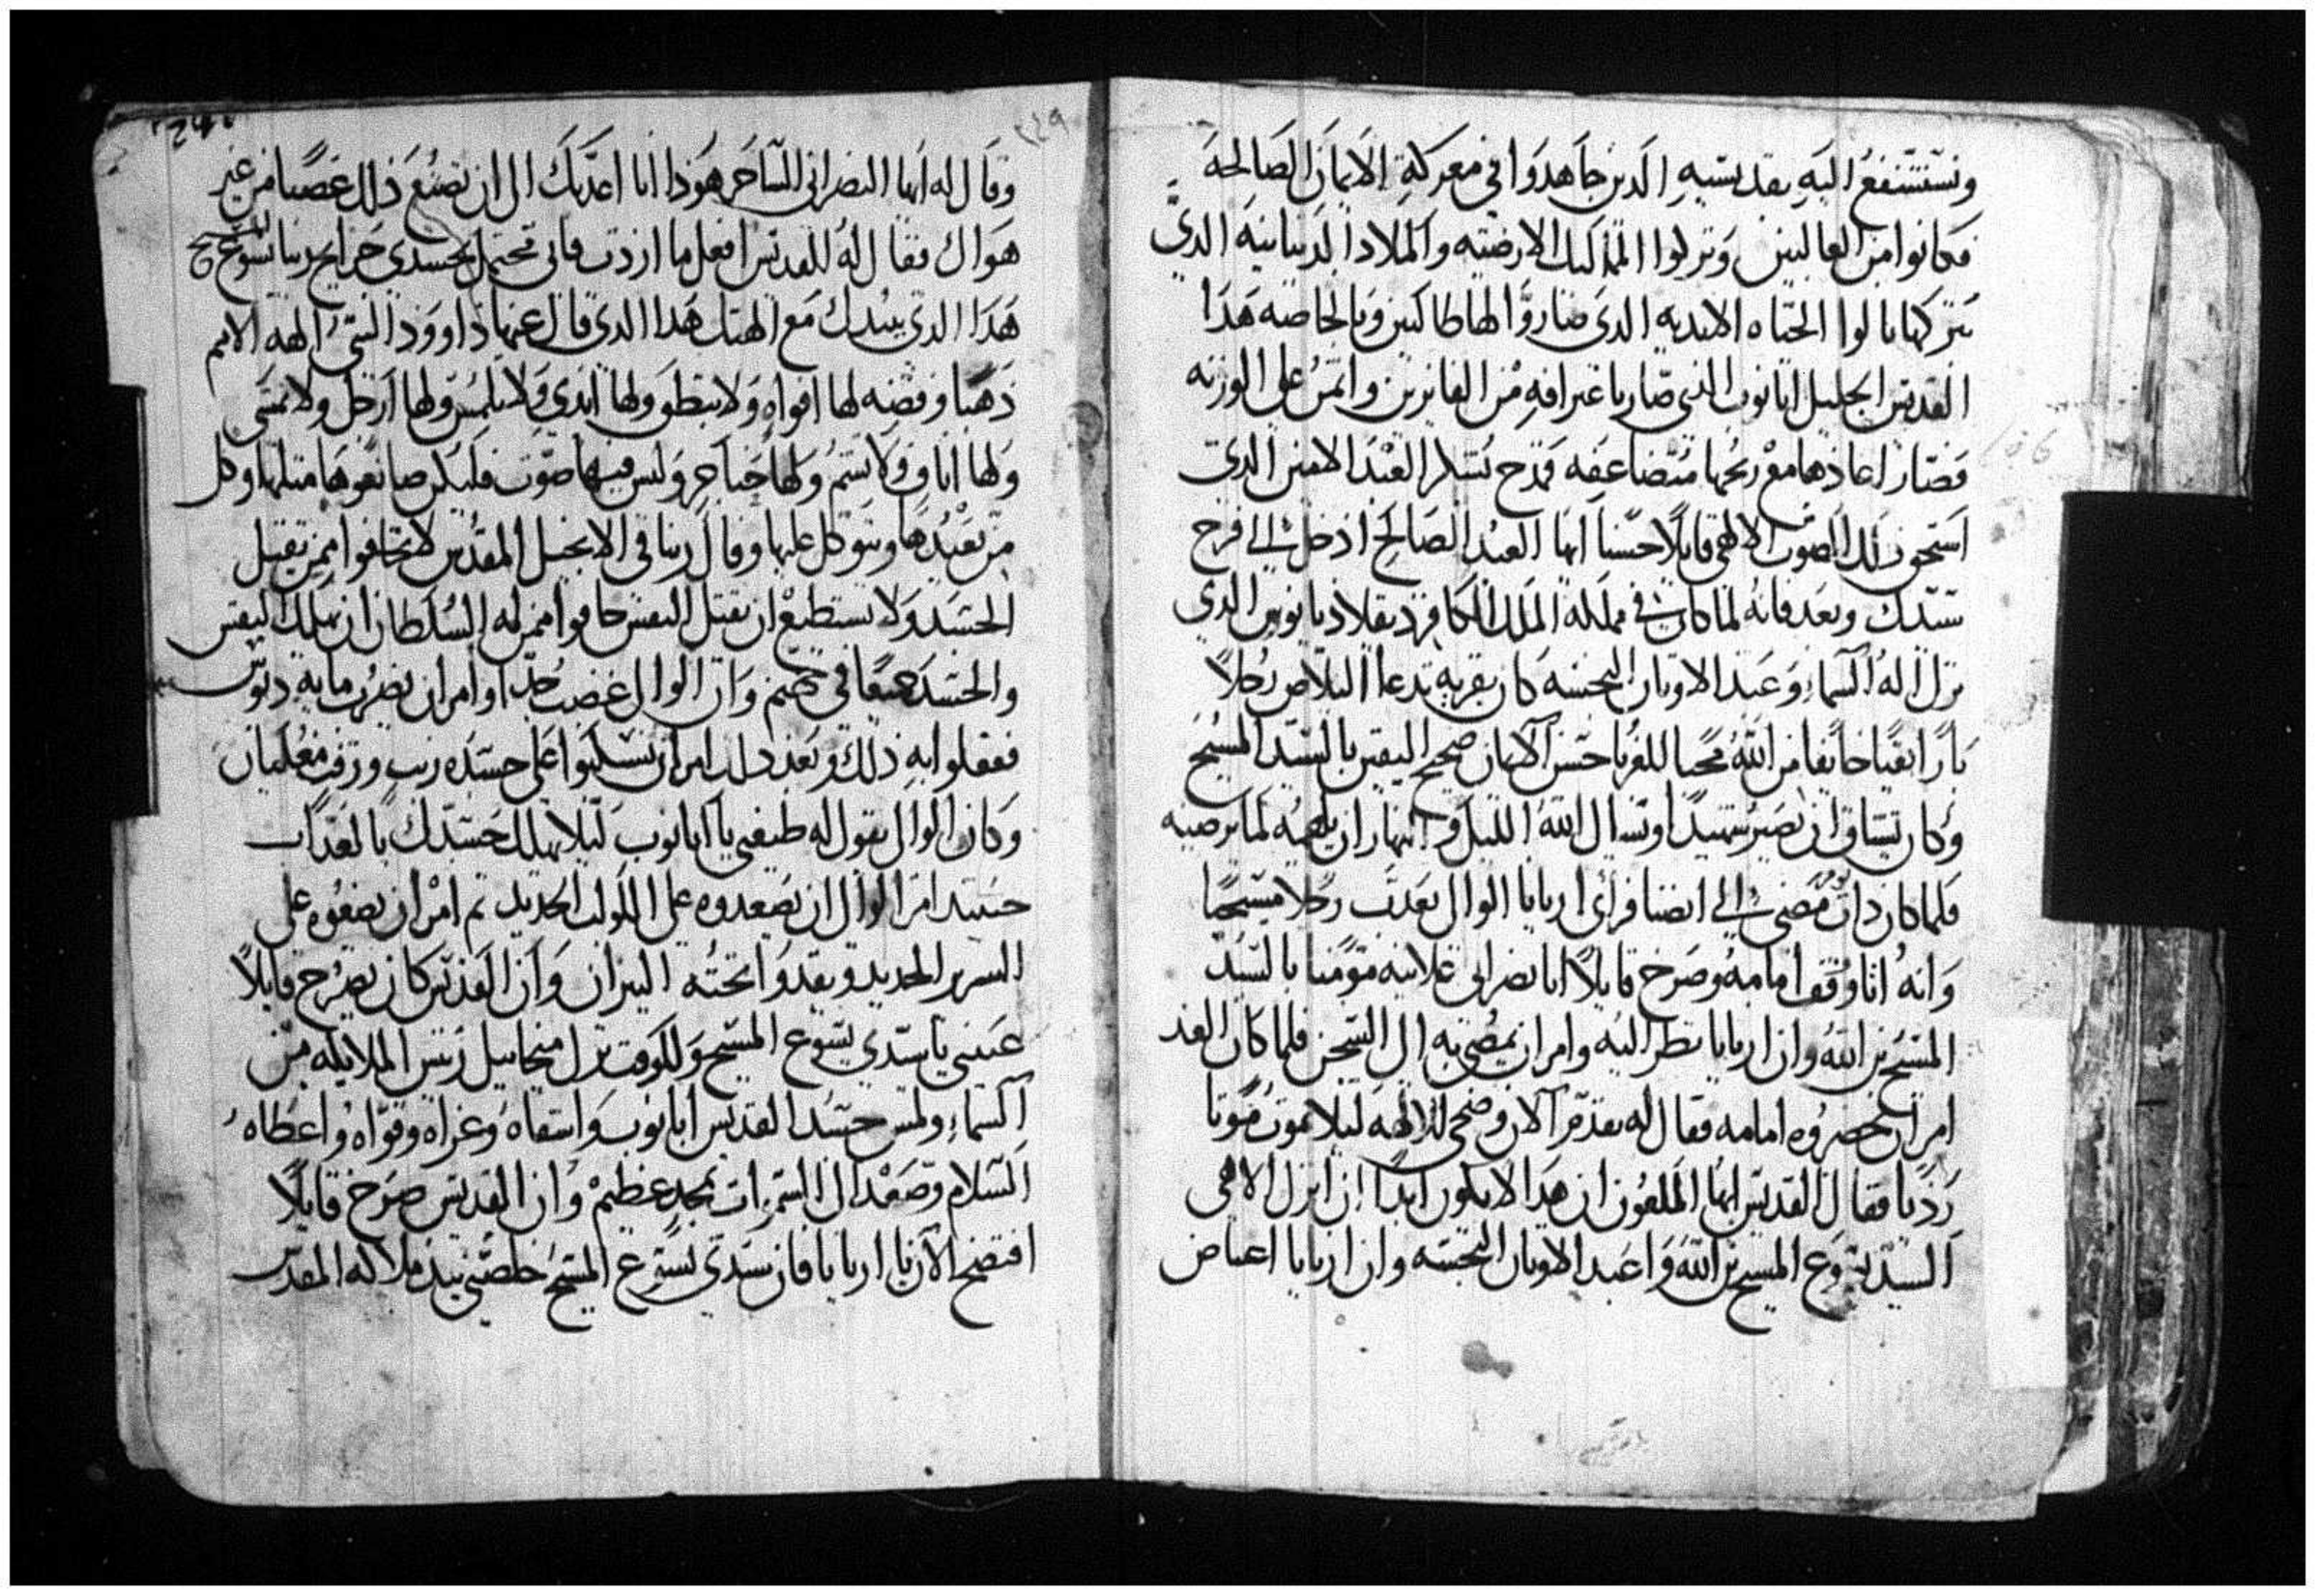 ونستشفع اليه بقديسيه الدين جاهدوا في معركة الايمان الصالحه
فكانوا من الغالبين وتركوا الممالك الارضيه والملادا الدنيانيه الدي
تتركها نالوا الحياه الابديه الدي صاروا لها طالبين وبالخاصه هدا
القديس الجليل ابانوب الدي صار باعترافه من الفايزين واتمن على الوزنه
فصار اعادها مع ربحها متضاعفه فمدح نسل العبد الامين الدي
استحق دلك الصوت الالهي قايلا حسنا ايها العبد الصالح ادخل الى فرح
سيدك وبعد فانه لما كان في مملكة الملك الكافر دقلاديانوس الدي
نزل اله السماء وعبد الاوتان النجسه كان بقريه تدعا البلاص رجلا
بارا تقيا خايفا من الله محبا للغربا حسن الايمان صحيح اليقين بالسيد المسيح
وكان يشتاق ان يصير شهيدا وسال الله الليل والنهار ان يلهمه لما يرضيه
فلما كان دات يوم مضى الى انصنا فراى اريانا الوالى يعدب رجلا مسيحيا
وانه اتا وقف امامه وصرخ قايلا انا نصرانى علانيه مومنا بالسيد
المسيح بن الله وان اريانا نظر اليه وامر ان يمضى به الى السجن فلما كان الغد
امر ان يحضروه امامه فقال له تقدم الان وضحى للالهه ليلا تموت موتا
رديا فقال القديس ايها الملعون ان هدا لا يكون ابدا ان اترك الاهى
السيد يسوع المسيح بن الله واعبد الاوتان النجسه وان اريانا اغتاض
٢٤٩
وقال له ايها النصرانى الساحر هودا انا اعدبك الى ان تصنع ذلك غصبا من غير
هواك فقال له القديس افعل ما اردت فانى محتمل بجسدي جراح ربنا يسوع المسيح
هدا الدي يبيدك مع الهتك هدا الدي قال عنها داوود النبي الهه الامم
ذهبا وفضه لها افواه ولا ينطق ولها ايدي ولا يلمس ولها ارجل ولا تمشى
ولها اناف ولا يشم ولها حناجر وليس فيها صوت فليكن صانعوها متلها وكل
من يعبدها ويتوكل عليها وقال ربنا في الانجيل المقدس لا تخافوا ممن يقتل
الجسد ولا يستطيع ان يقتل النفس خافوا ممن له السلطان ان يهلك النفس
والجسد جميعا في جهنم وان الوالى غضب جدا وامر ان يضرب مايه دبوس
ففعلوا به ذلك وبعد دلك امر ان يسكبوا على جسده زيت وزفت مغليان
وكان الوالى يقول له طيعني يا ابانوب ليلا يهلك جسدك بالعداب
حينيد امر الوالى ان يصعدوه على اللولب الحديد تم امر ان يضعوه على
السرير الحديد ويقدوا تحته النيران وان القديس كان يصرخ قايلا
عينني يا سيدي يسوع المسيح وللوقت نزل ميخاييل رييس الملايكه من
السماء ولمس جسد القديس ابانوب واشفاه وعزاه وقواه واعطاه
السلام وصعد الى السموات بمجد عظيم وان القديس صرخ قايلا
افتضح الان يا اريانا فان سيدي يسوع المسيح خلصني بيد ملاكه المقدس